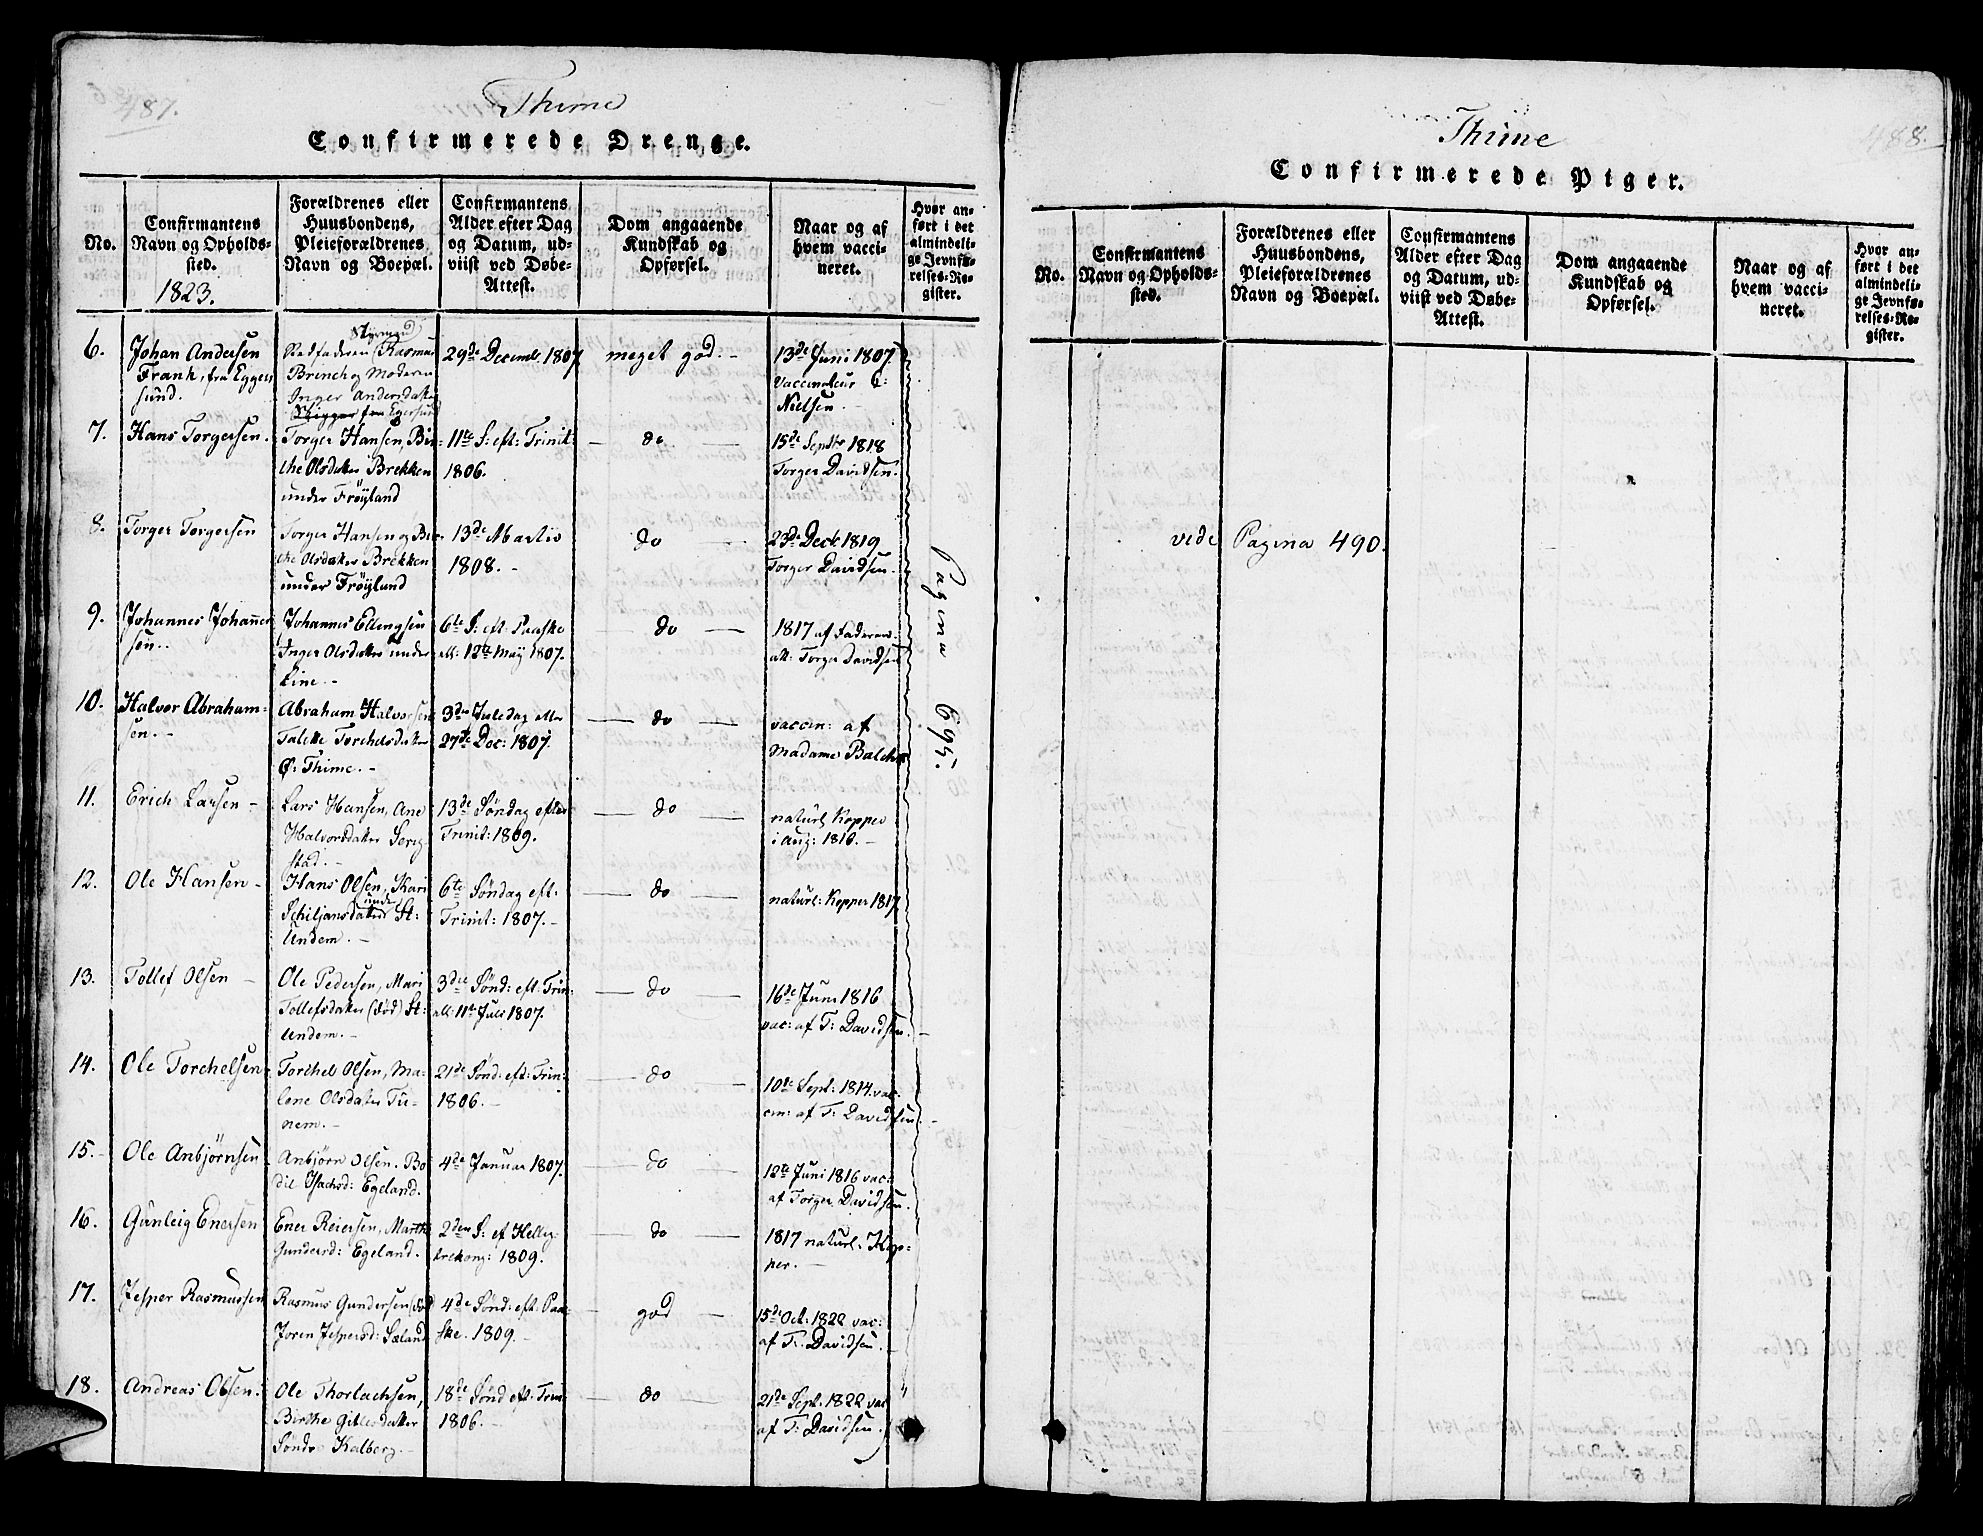 487.
Thime
Confirmerede Drenge.
No.
Confirmantens
Navn og Opholds-
sted.
1823.
Forældrenes eller
Huusbondens,
Pleieforældrenes
Navn og Boepæl.
Confirmantens
Alder efter Dag
og Datum, ud-
viist ved Døbe-
Attest.
Dom angaaende
Kundskab og
Opførsel.
Naar og af
hvem vacci-
neret.
Hvor an-
ført i det
almindeli-
ge Jevnfø-
relses-Re-
gister.
6.
Johan Andersen
Frank, fra Egger-
sund.
Styrmand
Stedfaderen (Rasmus
Brinch og Moderen
Inger Andersdatter
fra Egersund
29de Decembr 1807
meget god.-
13de Juni 1807.
Vaccinateur
Nielsen.
7.
Hans Torgersen.
Torger Hansen, Bir-
the Olsdatter Brekken
under Frøyland
11te S: eft: Trinit:
1806.
do
15de Septbr 1818
Torger Davidsen.
8.
Torger Torgersen
Torger Hansen og Bir-
the Olsdatter Brekken
under Frøylund
13de Martii
1808.-
do
23de Decbr 1819
Torger Davidsen.
9.
Johannes Johannes-
sen..
Johannes Ellingsen
Inger Olsdatter under
Line.-
6te S: eft: Paaske
all: 12te May 1807.
do
1817 af Faderen
all: Torger Davidsen
10.
Halvor Abraham-
sen.-
Abraham Halvorsen
Talette Torchelsdatter
Ø: Thime.-
3die Juledag eller
27de Dec: 1807.
do
vaccin: af
Madame Balchen
11.
Erich Larsen -
Lars Hansen, Ane
Halvorsdatter Serig-
stad.-
13de Søndag efter
Trinit: 1809.
do
naturl Kopper
i Aug: 1816.-
12.
Ole Hansen -
Hans Olsen, Kari
Schiljansdatter under St:
Undem.-
6te Søndag eft:
Trinit: 1807.-
do
naturl: Kopper 1817
13.
Tollef Olsen -
Ole Pedersen, Mari
Tollefsdatter (Død) St:
Undem.-
3die Sønd: eft: Trin:
all: 11te Juli 1807.
do
16de Juni 1816
vac: af T: Davidsen.
14.
Ole Torchelsen
Torchel Olsen, Ma-
lene Olsdatter Tu-
nem.-
21de Sønd: eft: Trin:
1806.-
do
10de Sept: 1814 vac-
cin: af T: Davidsen.
15.-
Ole Anbjørnsen
Anbjørn Olsen, Bo-
dil Isachsd: Egeland.
4de Januar 1807.
do
12te Juni 1816 vac:
af Torger Davidsen.
16.
Gunleig Enersen
Ener Reiersen, Marthe
Gundersd: Egeland.
2den S: ef Hellig-
trekong: 1809.
do
1817 naturl: Kop-
per.-
17.
Jesper Rasmussen
Rasmus Gundersen (Død
Joren Jespersd: Sæland
4de Sønd: eft: Paa-
ske: 1809.-
god
15de Oct: 1822 vac:
af T: Davidsen.
18.
Andreas Olsen.
Ole Thorlachsen,
Birthe Gitlesdatter
Søndr Kalberg.-
18de Sønd eft: Trin:
1806.-
do
21de Sept: 1822 vac
af T: Davidsen.
Pagina 695.
488.
Thime
Confirmerede Piger.
No.
Confirmantens
Navn og Opholds-
sted.
Forældrenes eller
Huusbondens,
Pleieforældrenes
Navn og Boepæl.
Confirmantens
Alder efter Dag
og Datum, ud-
viist ved Døbe-
Attest.
Dom angaaende
Kundskab og
Opførsel.
Naar og af
hvem vacci-
neret.
Hvor an-
ført i det
almindeli-
ge Jevnfø-
relses-Re-
gister.
vide Pagina 490.